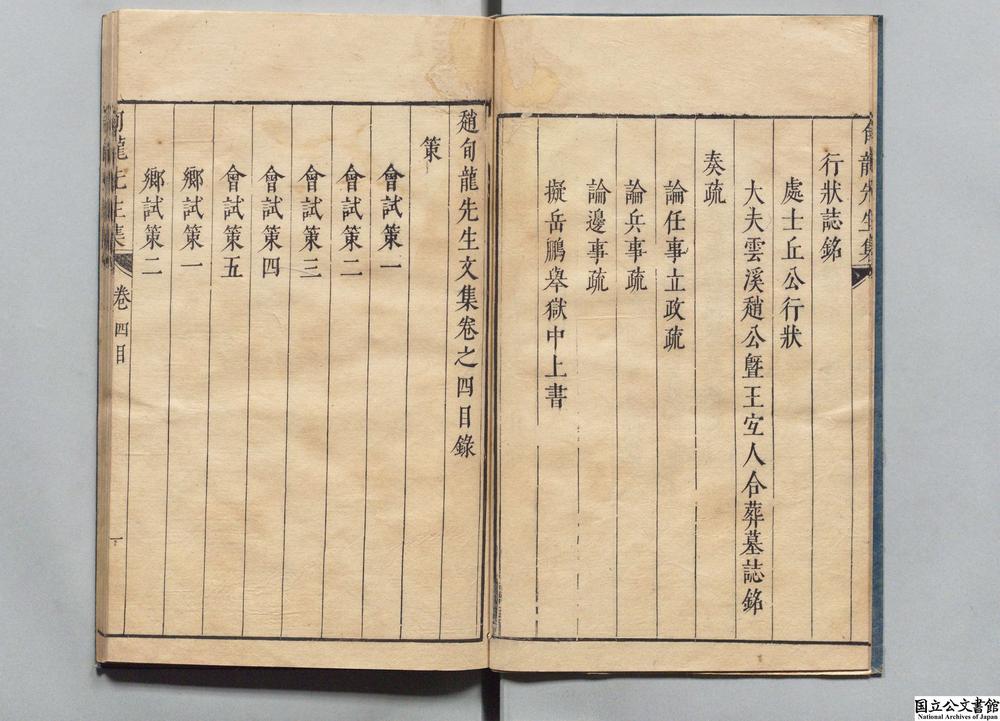 旬龍先生集
行狀誌銘
處士丘公行狀
大夫雲溪趙公曁王宜人合葬墓誌銘
奏疏
論任事立政疏
論兵事疏
論邊事疏
擬岳鵬舉獄中上書
趙旬龍先生文集卷之四目錄
策
會試策一
會試策二
會試策三
會試策四
會試策五
鄉試策一
鄉試策二
旬龍先生集 卷四目 一
国立公文書館
National Archives of Japan